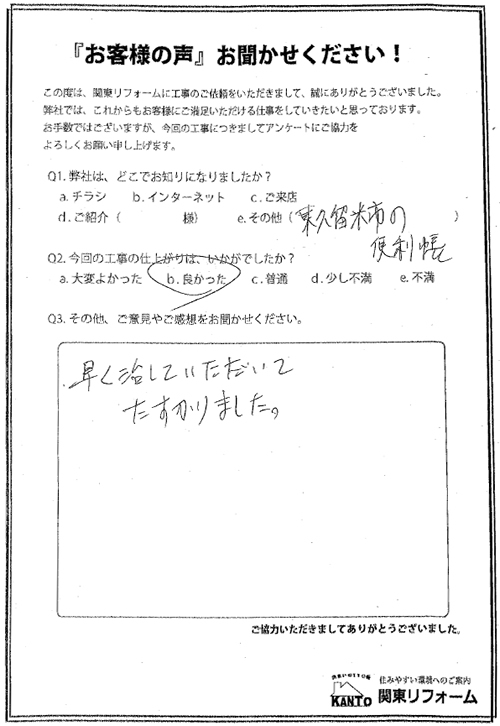 『お客様の声』お聞かせください！
この度は、関東リフォームに工事のご依頼をいただきまして、誠にありがとうございました。
弊社では、これからもお客様にご満足いただける仕事をしていきたいと思っております。
お手数ではございますが、今回の工事につきましてアンケートにご協力を
よろしくお願い申し上げます。
Q1. 弊社は、どこでお知りになりましたか？
a. チラシ b. インターネット c. ご来店
d. ご紹介（ 様） e. その他（東久留米市の
便利帳）
Q2. 今回の工事の仕上がりは、いかがでしたか？
a. 大変よかった b. 良かった c. 普通 d. 少し不満 e. 不満
Q3. その他、ご意見やご感想をお聞かせください。
早く治していただいて
たすかりました。
ご協力いただきましてありがとうございました。
住みやすい環境へのご案内
KANTO 関東リフォーム